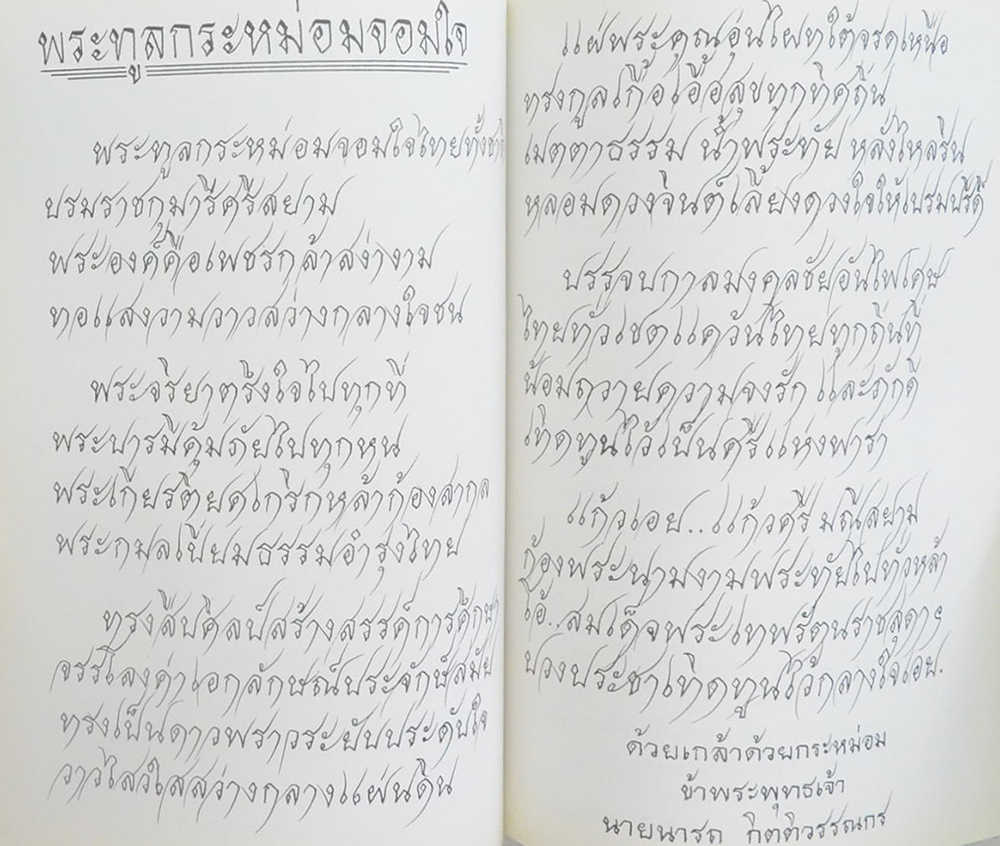 พระทูลกระหม่อมจอมใจ
พระทูลกระหม่อมจอมใจไทยทั้งชาติ
บรมราชกุมารีศรีสยาม
พระองค์คือเพชรกล้าสง่างาม
ทอแสงวามวาวสว่างกลางใจชน
พระจริยาตรึงใจไปทุกที่
พระบารมีคุ้มภัยไปทุกหน
พระเกียรติยศเกริกหล้าก้องสากล
พระกมลเปี่ยมธรรมอำรุงไทย
ทรงสืบศิลป์สร้างสรรค์การศึกษา
จรรโลงค่าเอกลักษณ์ประจักษ์สมัย
ทรงเป็นดาวพราวระยับประดับใจ
วาวไสวใสสว่างกลางแผ่นดิน
แผ่พระคุณอุ่นไผทใต้จรดเหนือ
ทรงกูลเกื้อเอื้อสุขทุกทิศถิ่น
เมตตาธรรม น้ำพระทัย หลั่งไหลริน
หลอมดวงจินต์เลี้ยงดวงใจให้เปรมปรีดิ์
บรรจบกาลมงคลชัยอันไพเศษ
ไทยทั่วเขตแคว้นไทยทุกถิ่นที่
น้อมถวายความจงรัก และภักดี
เทิดทูนไว้เป็นศรีแห่งพารา
แก้วเอย..แก้วศรี มณีสยาม
ก้องพระนามงามพระทัยไปทั่วหล้า
โอ้..สมเด็จพระเทพรัตนราชสุดาฯ
ปวงประชาเทิดทูนไว้กลางใจเอย.
ด้วยเกล้าด้วยกระหม่อม
ข้าพระพุทธเจ้า
นายนารถ กิตติวรรณกร